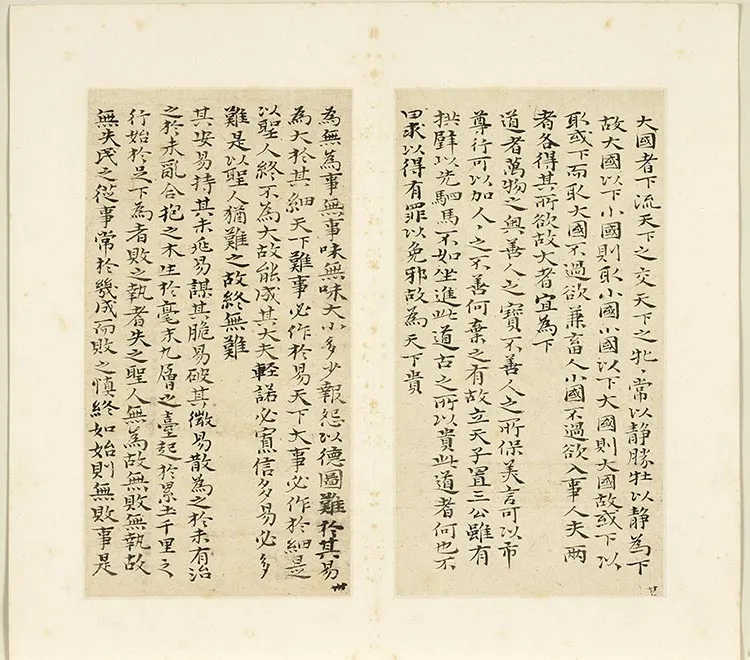 大國者下流天下之交天下之牝、常以静勝牡以静為下
故大國以下小國則取小國小國以下大國則大國故或下以
取或下而取大國不過欲兼畜人小國不過欲入事人夫兩
者各得其所欲故大者宜為下
道者萬物之奧善人之寶不善人之所保美言可以市
尊行可以加人、之不善何棄之有故立天子置三公雖有
拱璧以先駟馬不如坐進此道古之所以貴此道者何也不
曰求以得有罪以免邪故為天下貴
為無為事無事味無味大小多少報怨以德圖難於其易
為大於其細天下難事必作於易天下大事必作於細是
以聖人終不為大故能成其大夫輕諾必寡信多易必多
難是以聖人猶難之故終無難
其安易持其未兆易謀其脆易破其微易散為之於未有治
之於未亂合抱之木生於毫末九層之臺起於累土千里之
行始於足下為者敗之執者失之聖人無為故無敗無執故
無失民之從事常於幾成而敗之慎終如始則無敗事是